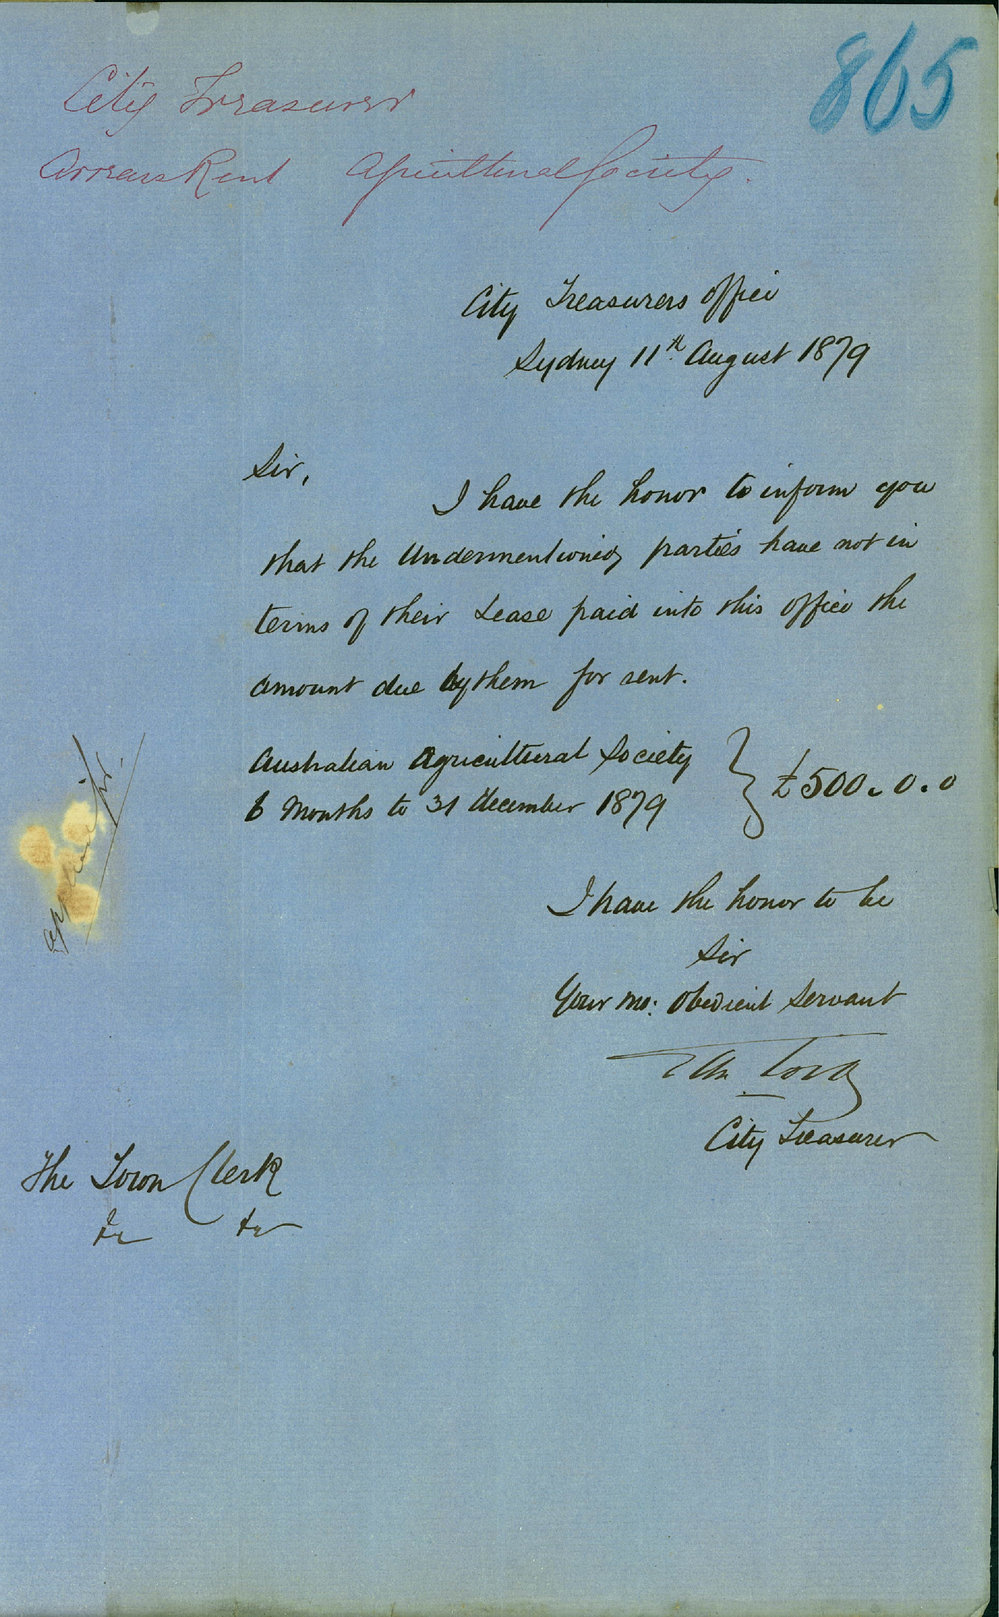 865
City Treasurer
Arrears Rent Agricultural Society.
City Treasurers Office
Sydney 11th August 1879
Sir,
I have the honor to inform you
that the Undermentioned parties have not in
terms of their Lease paid into this office the
amount due by them for rent.
Australian Agricultural Society
6 Months to 31 December 1879 } £500.0.0
I have the honor to be
Sir
Your mo: Obedient Servant
City Treasurer
The Town Clerk
&c &c